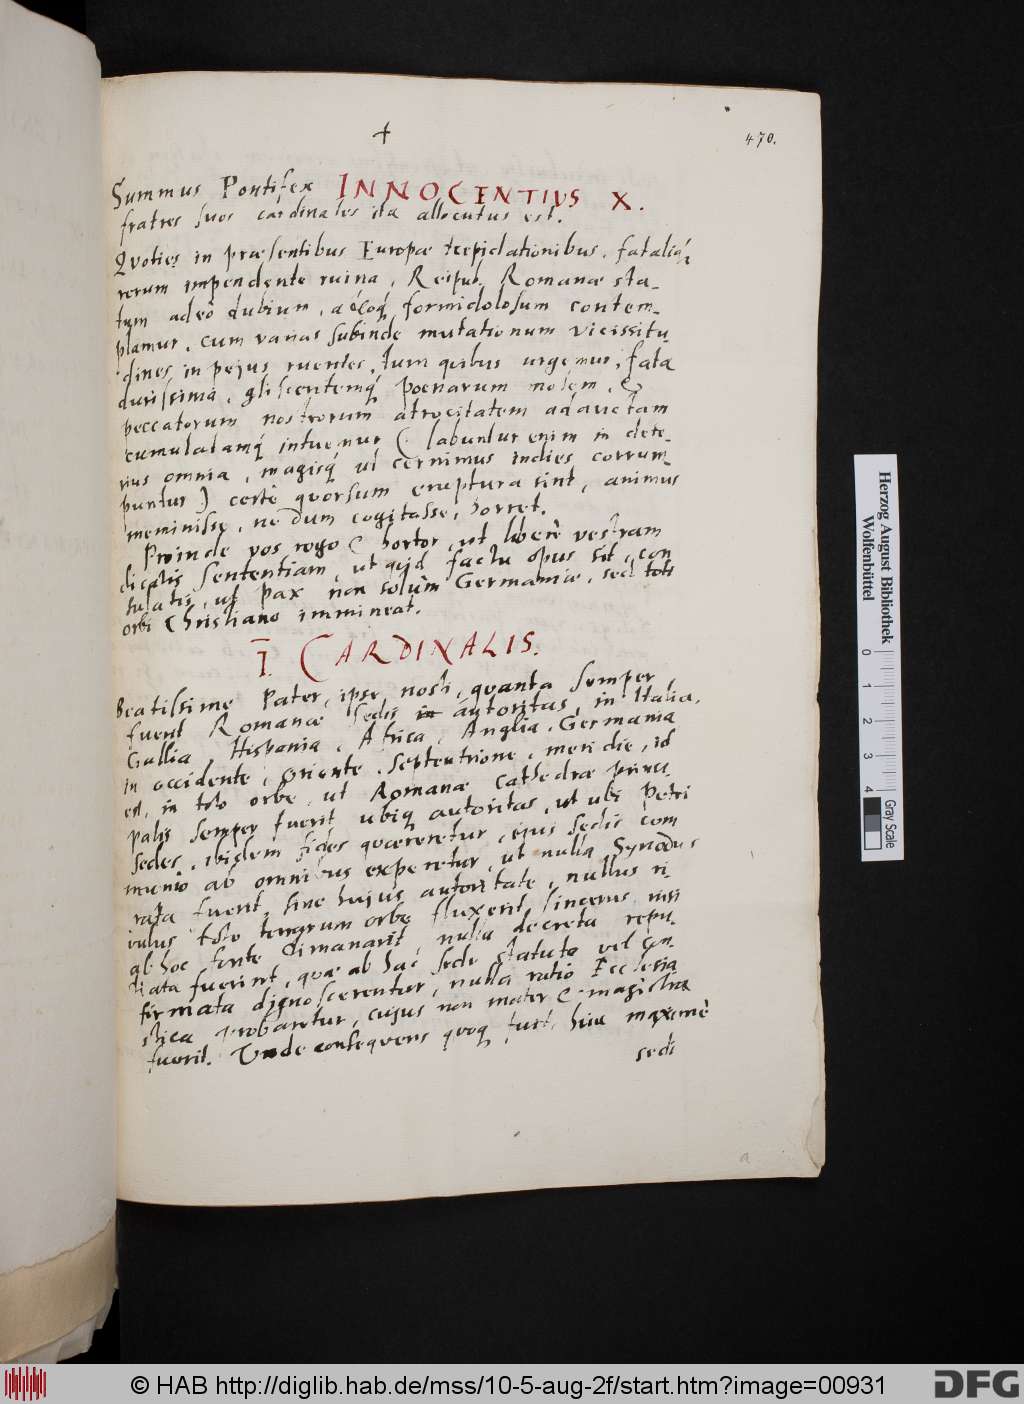 +
470.
Summus Pontifex INNOCENTIUS X.
fratres suos cardinales ita allocutus est.
Quoties in præsentibus Europæ trepidationibus, fataliq́;
rerum impendente ruina, Reipub. Romanæ sta-
tum adeò dubium, adeoq́ formidolosum contem-
plamur, cum varias subinde mutationum vicissitu
dines, in pejus ruentes, tum quibus urgemur, fata
durissima, gliscentemq́ poenarum molem, &
peccatorum nostrorum atrocitatem adauctam
cumulatamq́ intuemur (labuntur enim in dete-
rius omnia, magisq́ ut cernimus indies corrum-
puntur) certè quorsum eruptura sint, animus
meminisse, ne dum cogitasse, horret.
Proinde vos rogo & hortor, ut liberè vestram
dicatis sententiam, ut quid factu opus sit, con
sulatis, ut pax non solùm Germaniæ, sed toti
orbi Christiano immineat.
I. CARDINALIS.
Beatissime Pater, ipse nosti, quanta semper
fuerit Romanæ sedis in autoritas, in Italia,
Gallia, Hispania, Africa, Anglia, Germania
in occidente, oriente, Septentrione, meridie, id
est, in toto orbe, ut Romanæ cathedræ princi-
palis semper fuerit ubiq autoritas, ut ubi Petri
sedes, ibidem fides quæreretur, ejus sedis com
munio ab omnibus expeteretur, ut nulla Synodus
rata fuerit, sine hujus autoritate, nullus ri-
vulus toto terrarum orbe fluxerit sincerus, nisi
ab hoc fonte dimanarit, nulla decreta repu-
diata fuerint, quæ ab hac sede statuta vel con-
firmata dignoscerentur, nulla ratio Ecclesia
stica probaretur, cujus non mater & magistra
fuerit. Unde consequens quoq fuit, huic maximè
sedi
a
Herzog August Bibliothek
Wolfenbüttel
0 1 2 3 4
Gray Scale
© HAB http://diglib.hab.de/mss/10-5-aug-2f/start.htm?image=00931
DFG